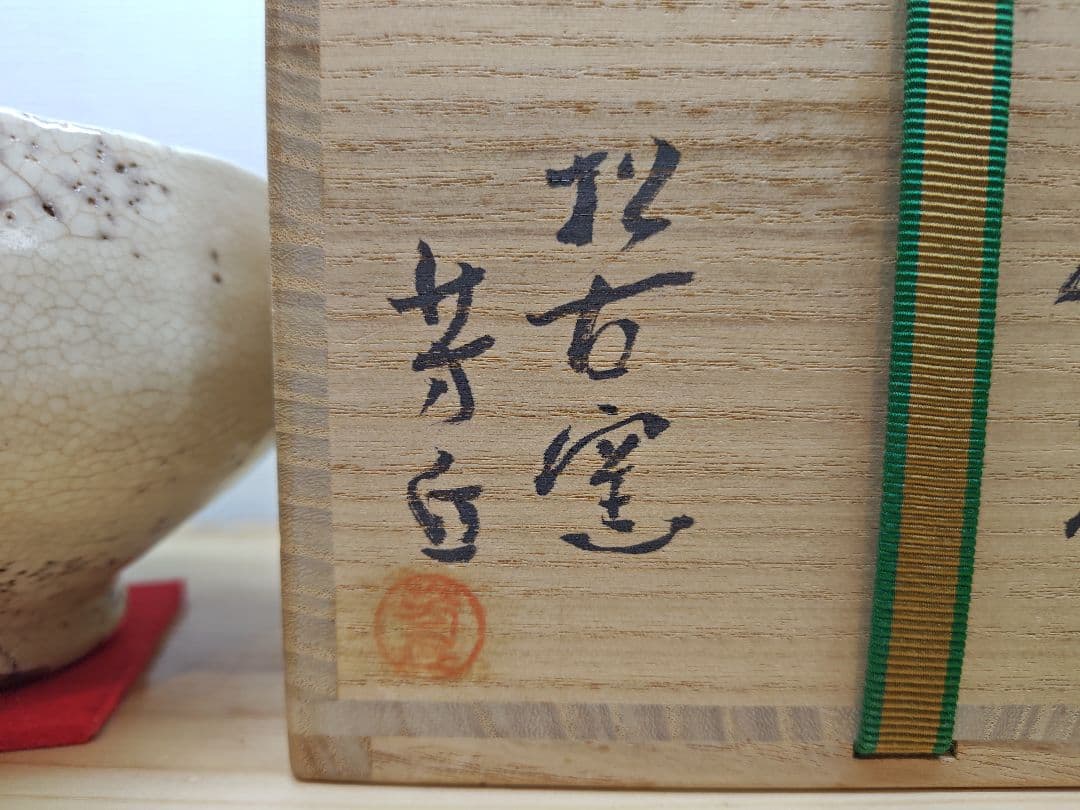 松古窯
芳丘